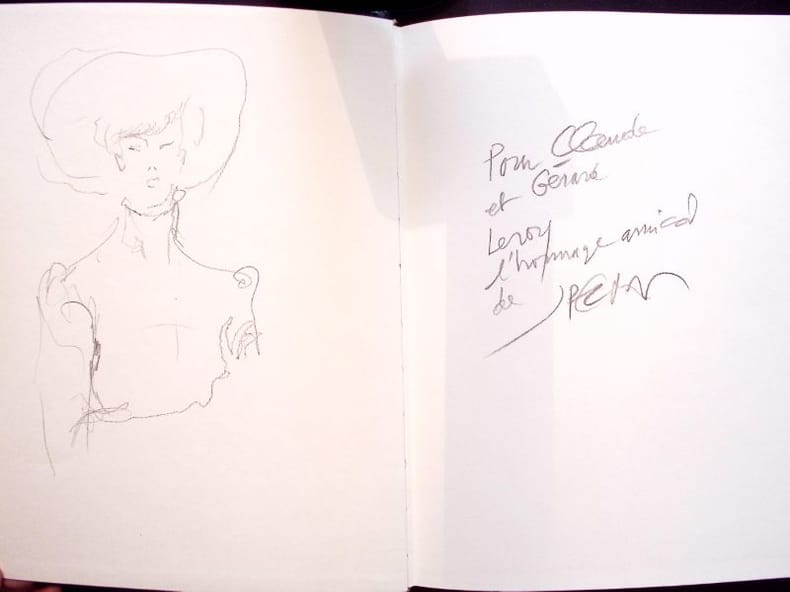 Pour Claude
et Gérard
Leroy
l'hommage amical
de